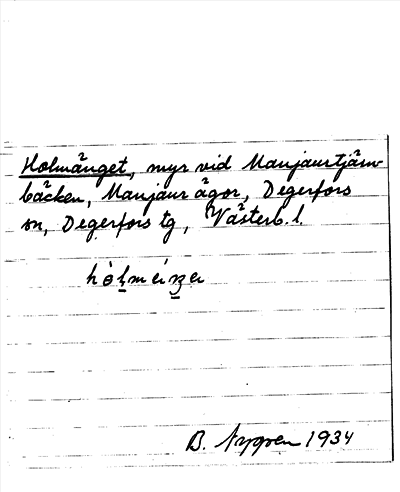 Holmänget, myr vid Manjaurtjärn-
bäcken, Manjaur ägor, Degerfors
sn, Degerfors tg, Västerb. l.
B. Nygren 1934